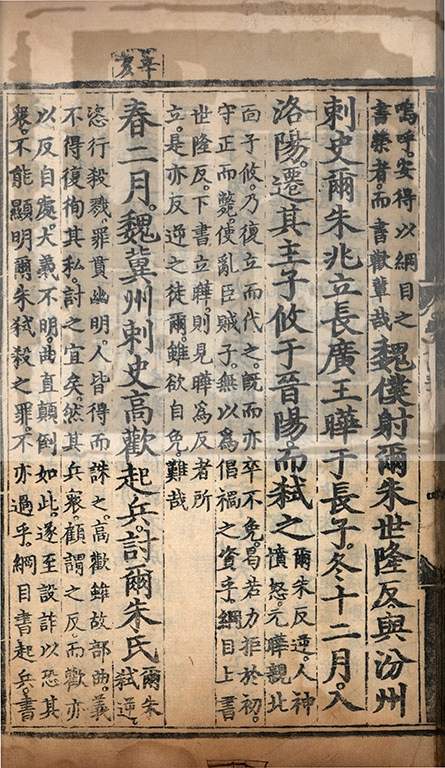 辛亥
嗚呼。安得以綱目之
書榮者。而書歡輩哉
魏僕射爾朱世隆反。與汾州
刺史爾朱兆立長廣王曄于長子。冬十二月。入
洛陽。遷其主子攸于晉陽。而弑之
爾朱反逆。人神
憤怒。元曄親北
面子攸。乃復立而代之。既而亦卒不免。曷若力拒於初。
守正而斃。使亂臣賊子。無以為倡禍之資乎。綱目上書
世隆反。下書立曄。則見曄為反者所
立。是亦反逆之徒爾。雖欲自免。難哉
春二月。魏冀州刺史高歡起兵。討爾朱氏
爾朱
弑逆。
恣行殺戮。罪貫幽明。人皆得而誅之。高歡雖故部曲。義
不得復徇其私。討之宜矣。然其兵衆顧謂之反。而歡亦
以反自處。大義不明。曲直顛倒如此。遂至設詐以恐其
衆。不能顯明爾朱弑殺之罪。不亦過乎。綱目書起兵。書